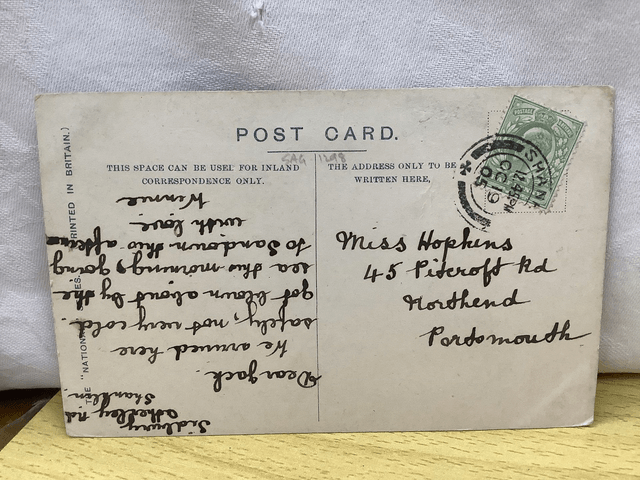 POST CARD.
GAG 1298
THIS SPACE CAN BE USED FOR INLAND
CORRESPONDENCE ONLY.
THE ADDRESS ONLY TO BE
WRITTEN HERE,
Miss Hopkins
45 Pitcroft Rd
Northend
Portsmouth
Sidbury
Atherley Rd
Shanklin
Dear Jack
We arrived here
safely, not very cold.
got blown about by the
sea this morning, going
to Sandown this aftern
with love.
Winnie
THE "NATIONAL" SERIES. PRINTED IN BRITAIN.)
SHANK
OC 19
05